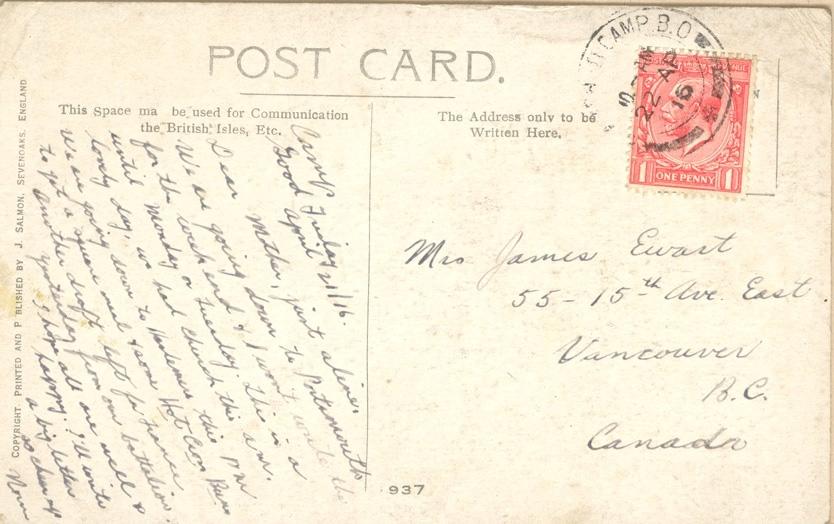 POST CARD.
This Space ma be used for Communication
the British Isles, Etc.
The Address only to be
Written Here.
CAMP B.O
22 AP
16
1 ONE PENNY 1
Camp
Good Friday
April 21/16.
Dear Mother, just a line,
We are going down to Portsmouth
for the week end & I won't write the
until Monday or Tuesday. This is a
lovely day, we had church this a.m.
We are going down to this pm
to get a square meal & some Hot Cross Buns
Another draft left for France
yesterday from our battalion.
I hope all are well &
happy. I'll write
a big letter
so cheer up
Norm
Mrs James Ewart
55-15th Ave. East.
Vancouver
B.C.
Canada
937
COPYRIGHT. PRINTED AND P BLISHED BY J. SALMON, SEVENOAKS, ENGLAND